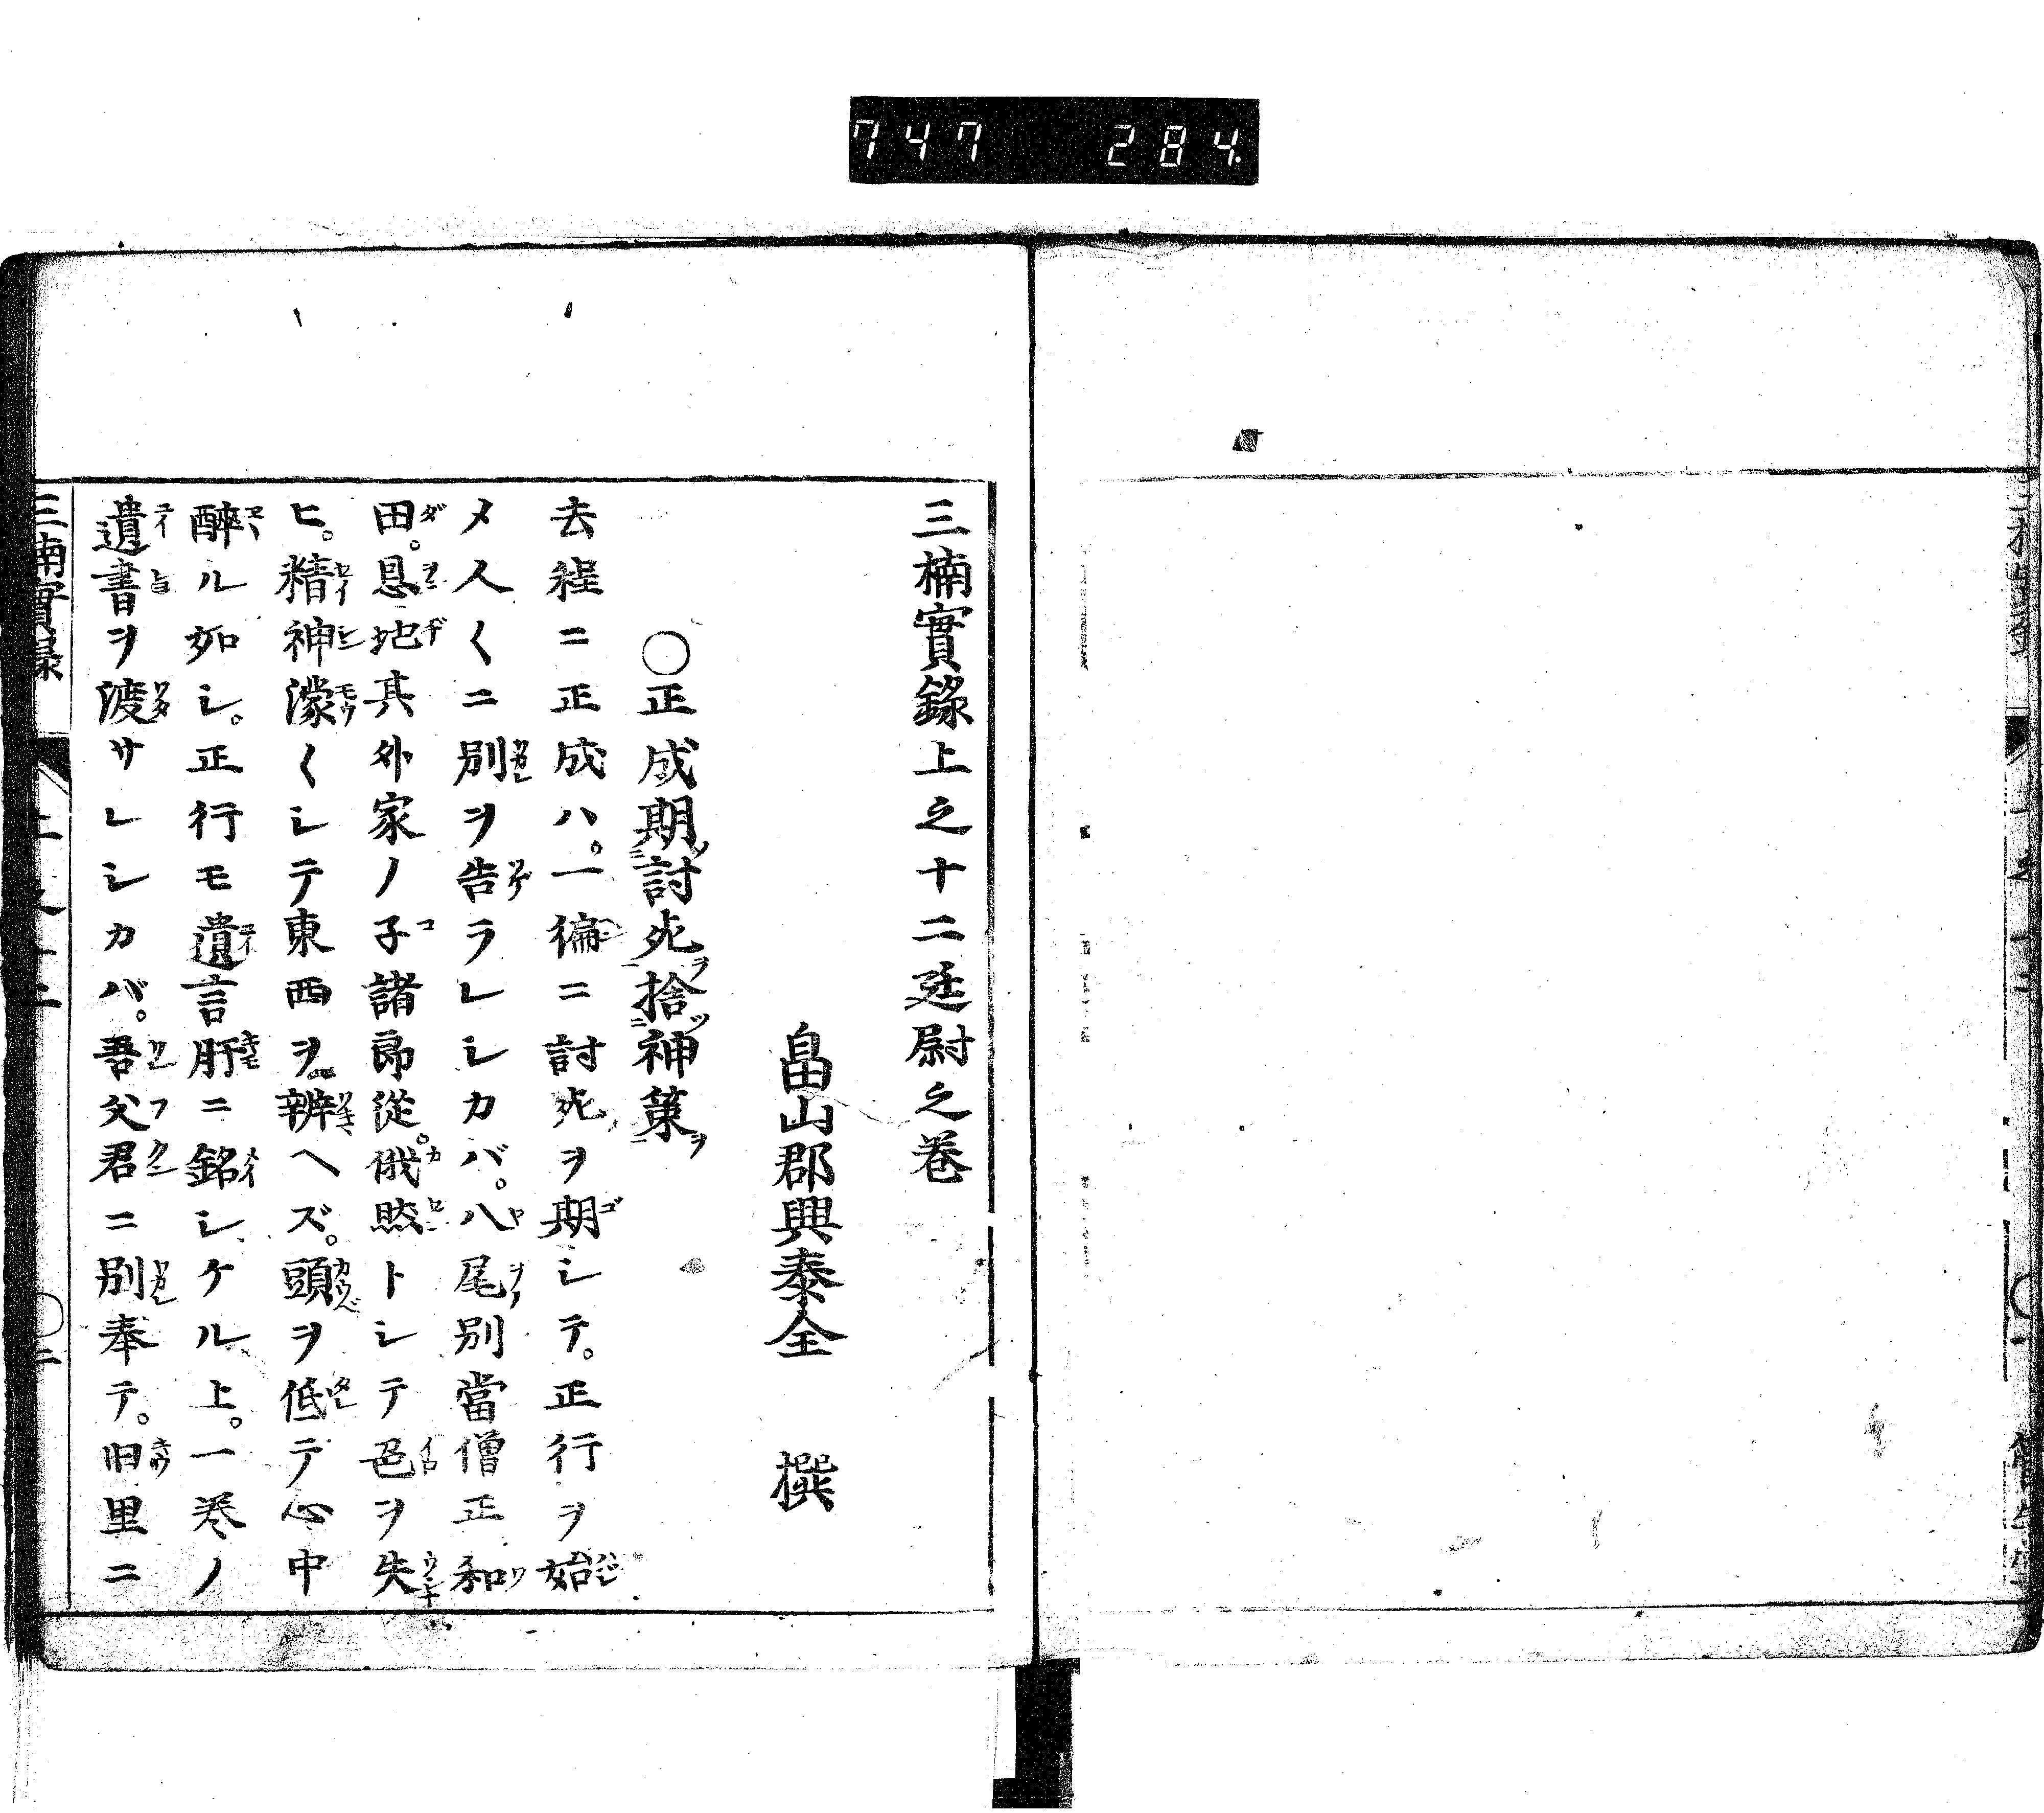 747 284
三楠實錄上之十二廷尉之巻
畠山郡興泰全 撰
○正成期討死捨神策
去程ニ正成ハ。一徧ニ討死ヲ期シテ。正行ヲ始
メ人〱ニ別ヲ告ラレシカバ。八尾別當僧正和
田。恩地其外家ノ子諸郎從。俄然トシテ色ヲ失
ヒ。精神濛〱シテ東西ヲ辨ヘズ。頭ヲ低デ心中
醉ル如シ。正行モ遺言肝ニ銘シケル上。一巻ノ
遺書ヲ渡サレシカバ。吾父君ニ別奉テ。旧里ニ
三楠實録 上之十二 〇二